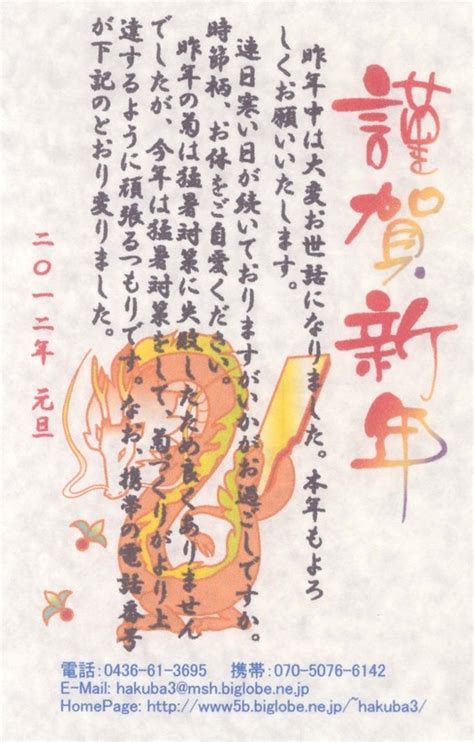 謹賀新年
昨年中は大変お世話になりました。本年もよろ
しくお願いいたします。
連日寒い日が続いておりますがいかがお過ごしですか。
時節柄、お体をご自愛ください。
昨年の菊は猛暑対策に失敗したため良くありません
でしたが、今年は猛暑対策をして、菊づくりがより上
達するように頑張るつもりです。なお、携帯の電話番号
が下記のとおり変りました。
二〇一二年 元旦
電話:0436-61-3695 携帯:070-5076-6142
E-Mail: hakuba3@msh.biglobe.ne.jp
HomePage: http://www5b.biglobe.ne.jp/~hakuba3/